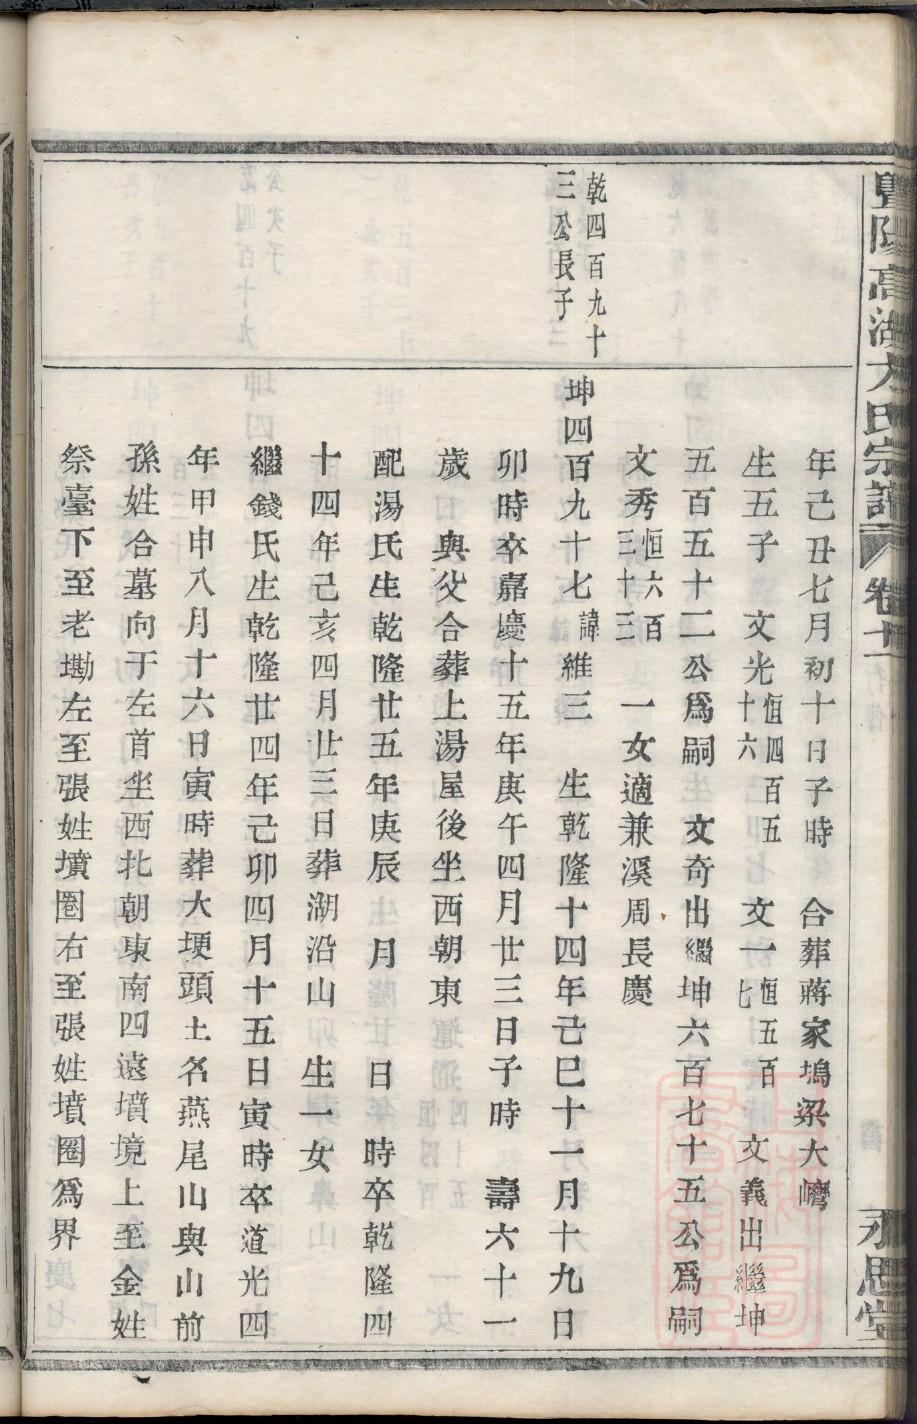 暨陽高湖方氏宗譜 卷十一 永思堂
年己丑七月初十日子時 合葬蔣家塢梁大㠠
生五子 文光恒四百五十六 文一恒五百七 文義出繼坤
五百五十二公爲嗣 文奇出繼坤六百七十五公爲嗣
文秀恒六百三十三 一女適兼溪周長慶
乾四百九十三公長子
坤四百九十七諱維三 生乾隆十四年己巳十一月十九日
卯時卒嘉慶十五年庚午四月廿三日子時 壽六十一
歲 與父合葬上湯屋後坐西朝東
配湯氏生乾隆廿五年庚辰 月 日 時卒乾隆四
十四年己亥四月廿三日葬湖沿山 生一女
繼錢氏生乾隆廿四年己卯四月十五日寅時卒道光四
年甲申八月十六日寅時葬大埂頭土名燕尾山與山前
孫姓合墓向于左首坐西北朝東南四遠墳境上至金姓
祭臺下至老墈左至張姓墳圈右至張姓墳圈爲界